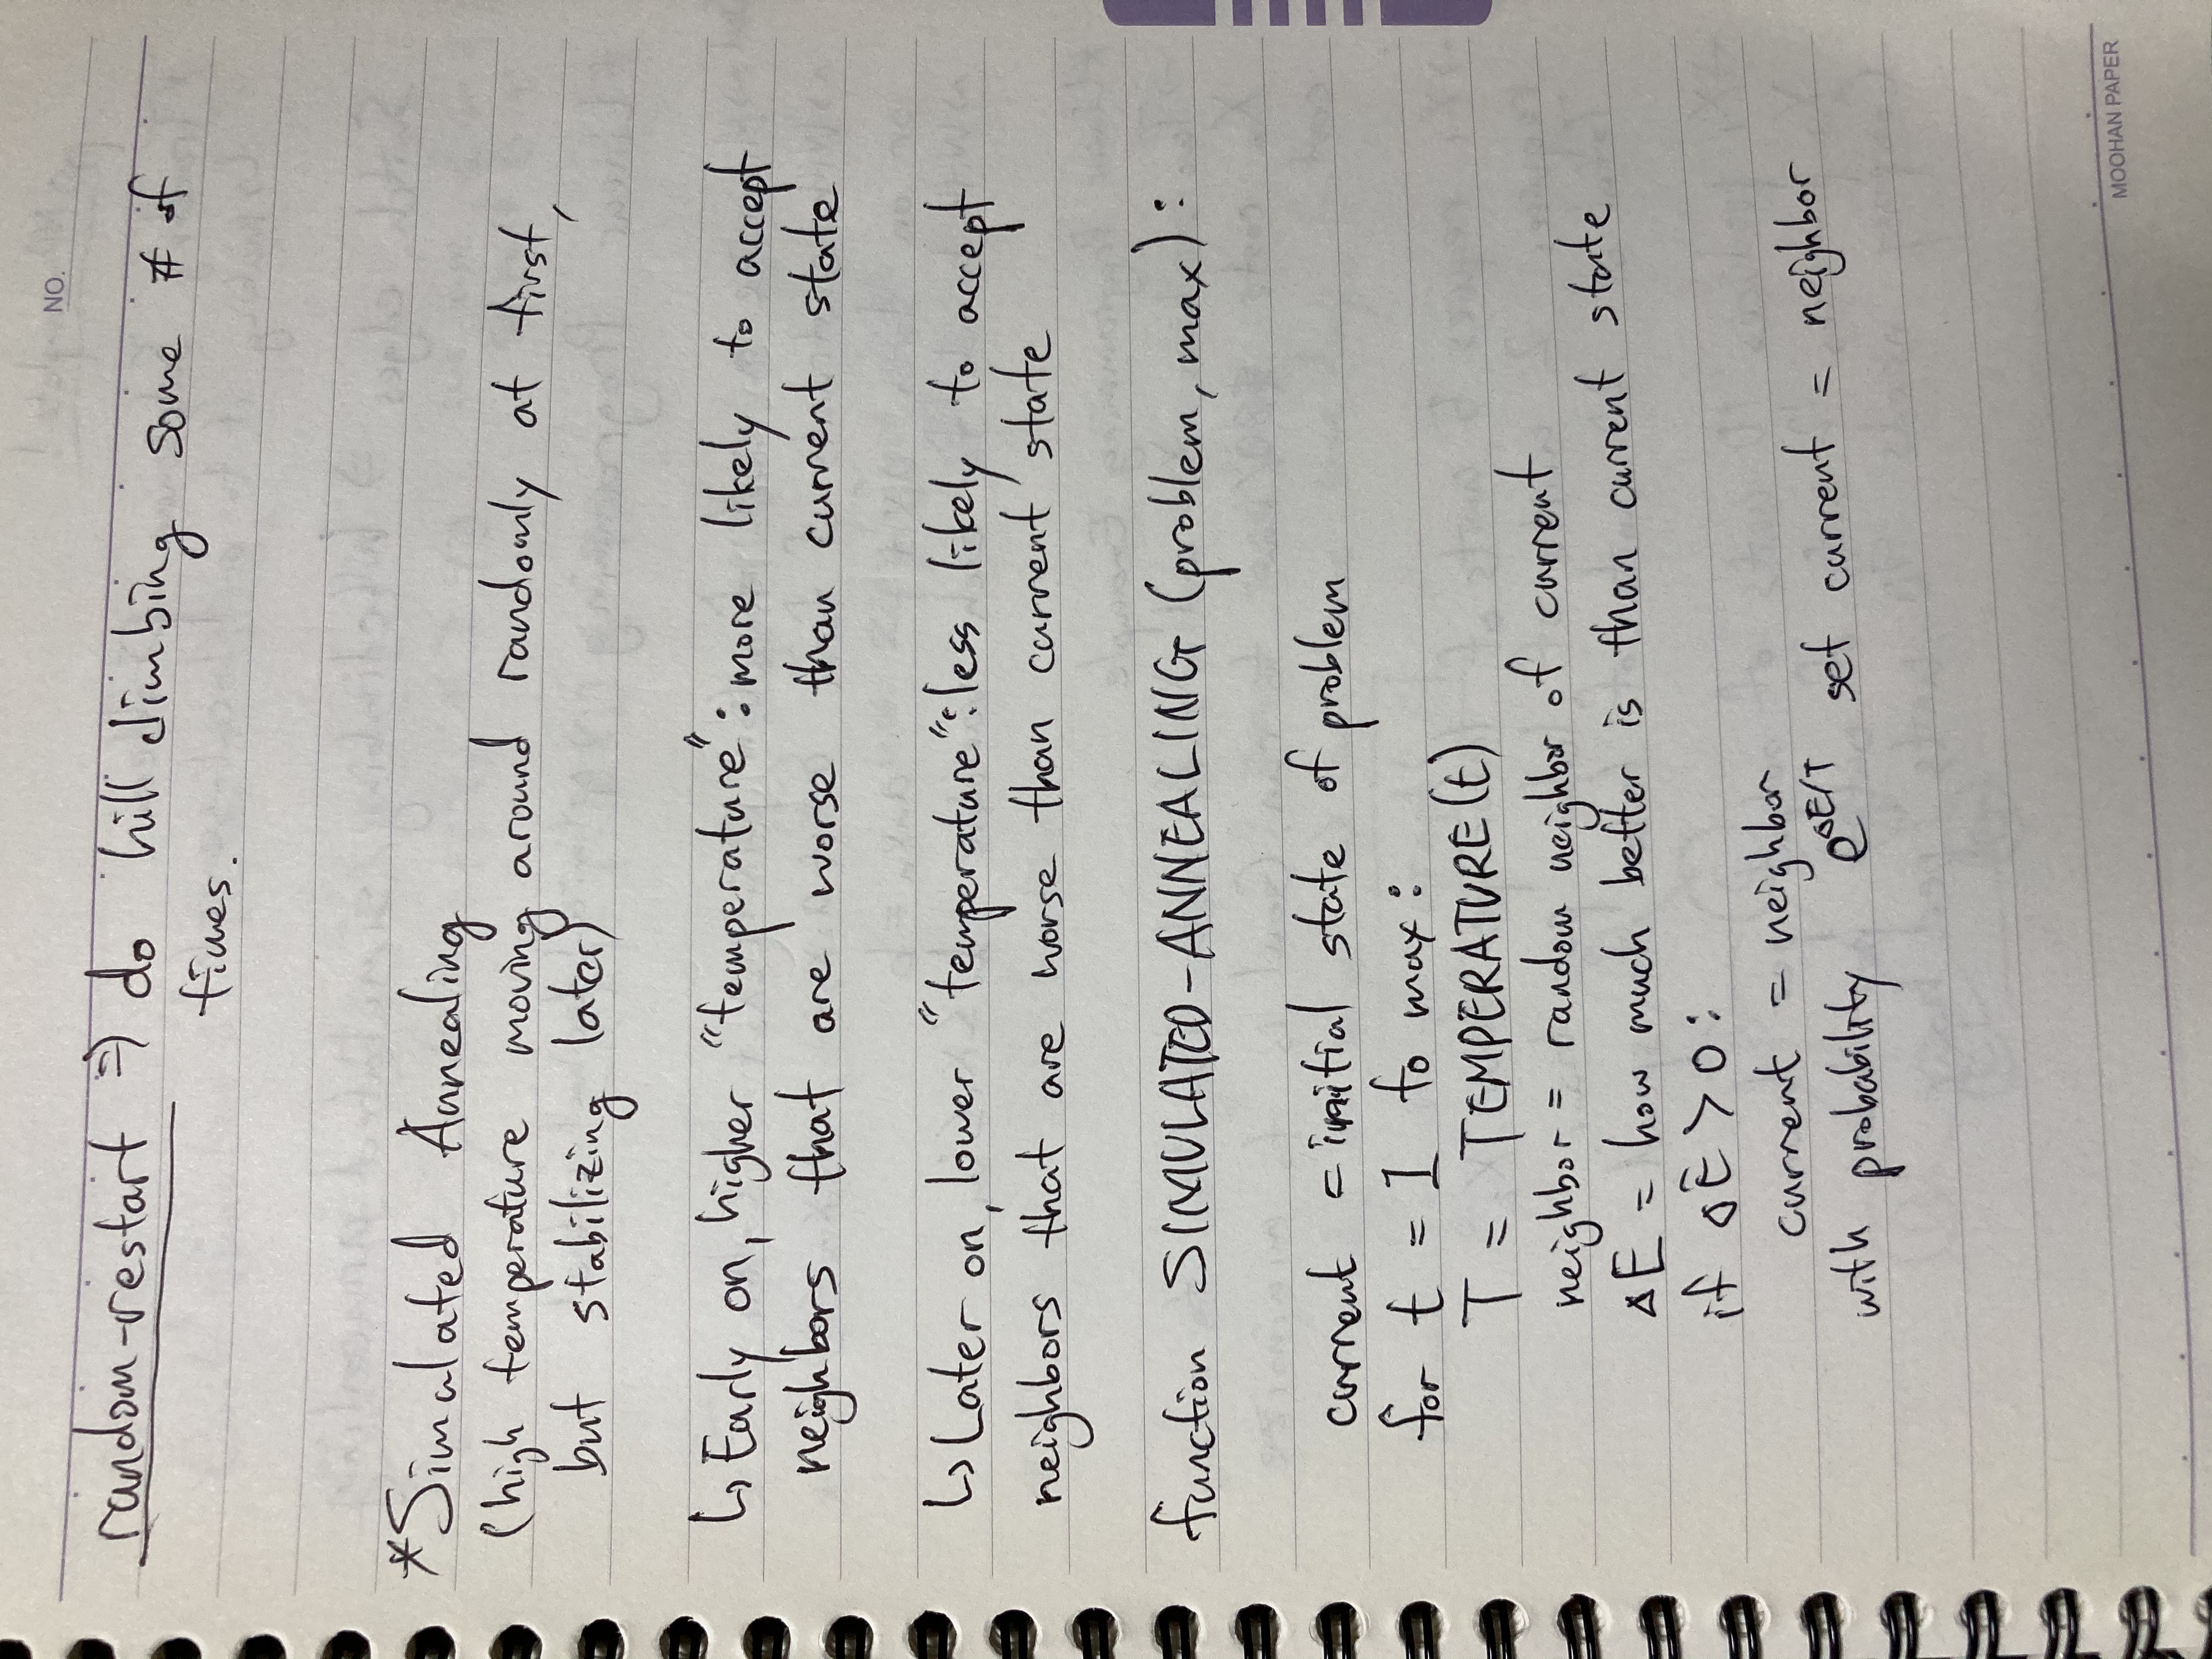 NO.
random-restart ⇒ do hill climbing some # of
times.
*Simulated Annealing
(high temperature moving around randomly at first,
but stabilizing later)
↳ Early on, higher "temperature": more likely to accept
neighbors that are worse than current state
↳ Later on, lower "temperature": less likely to accept
neighbors that are worse than current state
function SIMULATED-ANNEALING (problem, max):
current = initial state of problem
for t = 1 to max:
T = TEMPERATURE(t)
neighbor = random neighbor of current
ΔE = how much better is than current state
if ΔE > 0:
current = neighbor
with probability e^ΔE/T set current = neighbor
MOOHAN PAPER